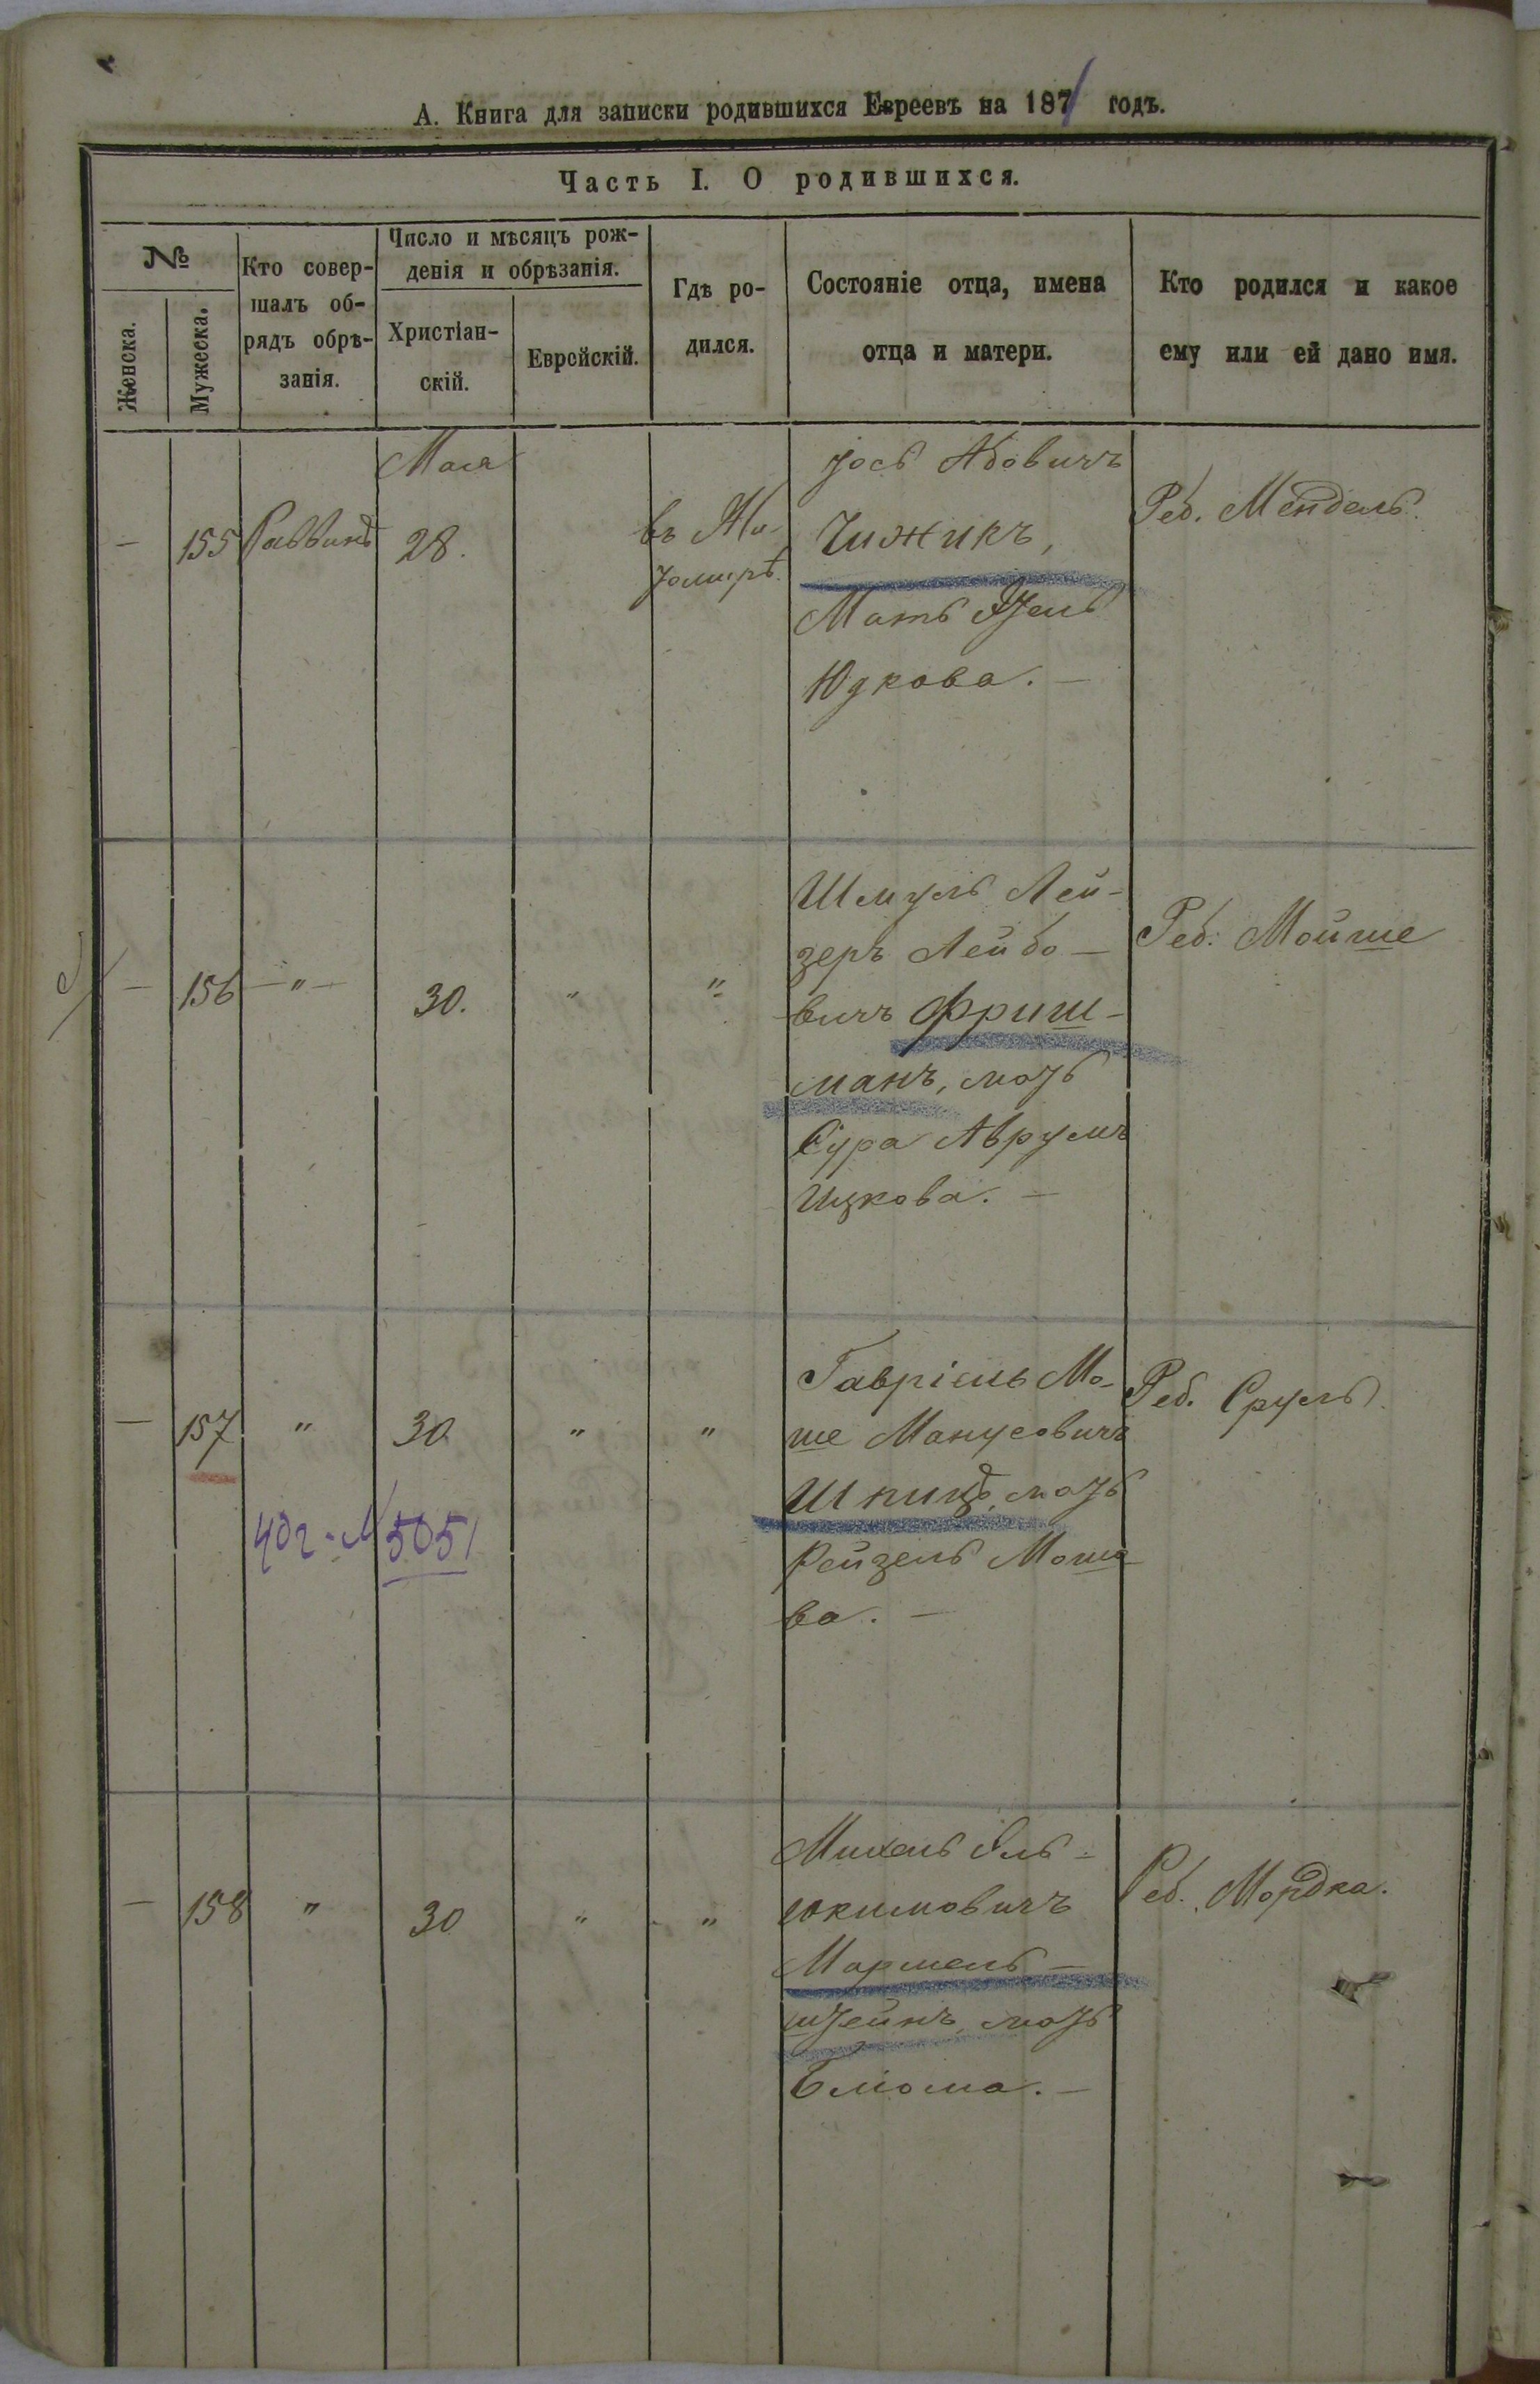 А. Книга для записки родившихся Евреевъ на 187 годъ.
Часть I. О родившихся.
№
Женска.
Мужеска.
Кто совер-
шалъ об-
рядъ обрѣ-
занія.
Число и мѣсяцъ рож-
денія и обрѣзанія.
Христіан-
скій.
Еврейскій.
Гдѣ ро-
дился.
Состояніе отца, имена
отца и матери.
Кто родился и какое
ему или ей дано имя.
—
155
Раввинъ
Мая
28.
въ Жи-
томирѣ.
Іось
Чижикъ,
Мать
Юдкова. —
Реб. Мендель.
—
156
— " —
30.
"
"
Шмуль Лей-
зеръ Лейбо —
вичъ Фриш-
манъ, мать
Сура Аврумъ
Ицкова. —
Реб: Мойше
—
157
"
30
"
"
№ 5051
Гавріель Мо-
ше Манусовичъ
Шпицъ, мать
Рейзель Мошо
ва. —
Реб. Сруль.
—
158
"
30
"
"
Михель Эль -
юкимовичъ
Мармель —
штейнъ, мать
Блюма. —
Реб. Мордка.